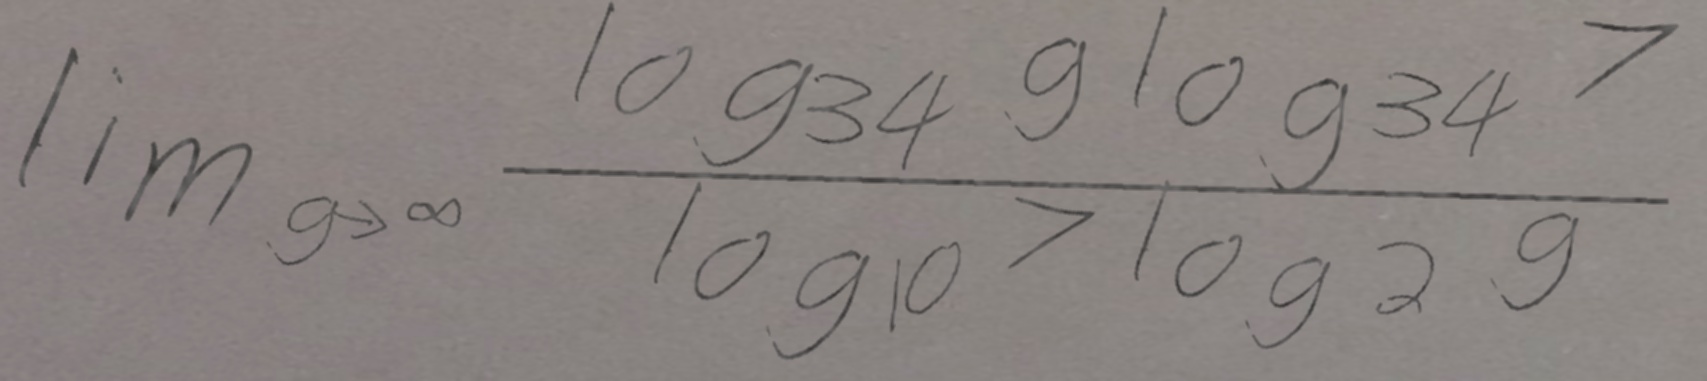 lim g→∞ 
log₃₄ g log₃₄ 7
log₁₀ 7 log₂ g